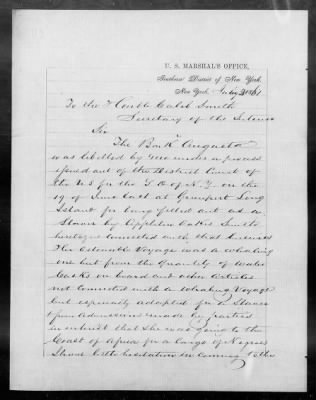 U. S. MARSHAL'S OFFICE,
Southern District of New York,
New York, July 1861
To the Honble Caleb Smith
Secretary of the Interior
Sir
The Bark Augusta
was libelled by me under a process
issued out of the District Court of
the U S for the S D of N.Y. on the
19 of June last at Greenport Long
Island for being fitted out as a
Slaver by Appleton Oaksmith
being connected with that business
Her Ostensible Voyage was a whaling
one but from the Quantity of Water
Casks on board and other articles
not connected with a Whaling Voyage
but especially adapted for a Slaver
& from admissions made by parties
in interest that She was going to the
Coast of Africa for a Cargo of Negroes
I have little hesitation in coming to the